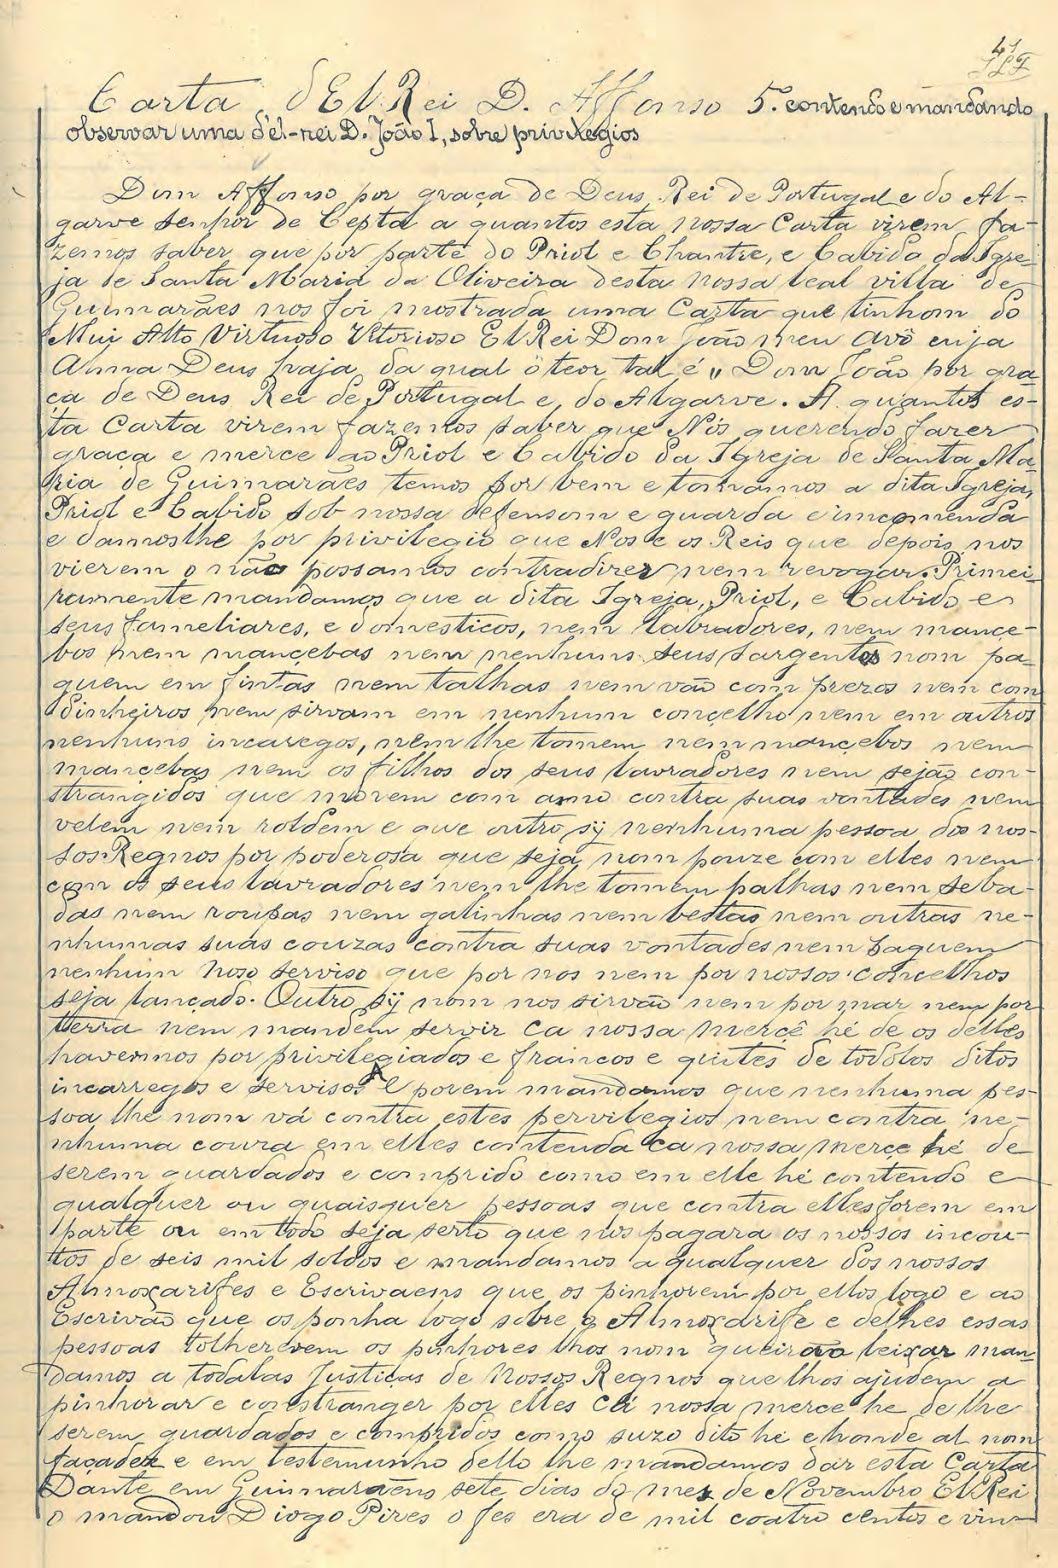 41
Carta dEl Rei D. Affonso 5.º contendo e mandando
observar uma d'el-rei D. João I, sobre privilegios
Dom Affonso por graça de Deus Rei de Portugal e do Al-
garve Senhor de Cepta a quantos esta nossa Carta virem fa-
zemos saber que por parte do Priol e Chantre, e Cabido da Igre-
ja de Santa Maria da Oliveira desta nossa leal villa de
Guimarães nos foi mostrada uma Carta que tinhom do
Mui Alto Virtuoso Vitorioso El Rei Dom João meu avô cuja
Alma Deus haja, da qual o teor tal é „ Dom João por gra-
ça de Deus Rei de Portugal e do Algarve. A quantos es-
ta Carta virem fazemos saber que Nós querendo fazer
graça e merce ao Priol e Cabido da Igreja de Santa Ma-
ria de Guimarães temos por bem e tomamos a dita Igreja,
Priol e Cabido sob nossa defensom e guarda e incomenda
e damoslhe por privilegio que Nos e os Reis que depois nos
vierem o não possamos contradizer nem revogar. Primei-
ramente mandamos que a dita Igreja, Priol, e Cabido e
seus fameliares, e domesticos, nem labradores, nem mance-
bos nem mançebas nem nenhuns seus sargentos nom pa-
guem em fintas nem talhas nem vão com prezos nem com
dinheiros nem sirvam em nenhum conçelho nem em outros
nenhuns incaregos, nem lhe tomem nem mançebos nem
mançebas nem os filhos dos seus lavradores nem sejão con-
strangidos que morem com amo contra suas vontades nem
velem nem roldem e que outro sÿ nenhuma pessoa dos nos-
sos Regnos por poderosa que seja nom pouze com elles nem
com os seus lavradores nem lhe tomem palhas nem seba-
das nem roupas nem galinhas nem bestas nem outras ne-
nhumas suas couzas contra suas vontades nem paguem
nenhum noso serviso que por nos nem por nossos concelhos
seja lançado. Outro sÿ nom nos sirvão nem por mar nem por
terra nem mandem servir ca nossa merçê hé de os delles
havermos por privilegiados e francos e quites de todolos ditos
incarregos e servisos E porem mandamos que nenhuma pes-
soa lhe nom vá contra estes pervilegios nem contra ne-
nhuma couza em elles contenda ca nossa merçe hé de
serem guardados e comprido como em elle hé contendo e
qualquer ou quaisquer pessoas que contra elles forem em
parte ou em todo seja serto que nos pagara os nossos incou-
tos de seis mil soldos e mandamos a qualquer dos nossos
Almoxarifes e Escrivaens que os pinhorem por ellos logo e ao
Escrivão que os ponha logo sobre o Almoxarife e delhes essas
pessoas tolherem os pinhores lhos nom queirão leixar man-
damos a todalas Justiças de Nossos Regnos que lhos ajudem a
pinhorar e constranger por elles Cá nossa merce he de lhe
serem guardados e compridos como suzo dito he e honde al nom
façades e em testemunho dello lhe mandamos dar esta Carta
Dante em Guimaraens sete dias do mes de Novembro El Rei
o mandou Diogo Pires o fes era de mil coatro centos e vin-